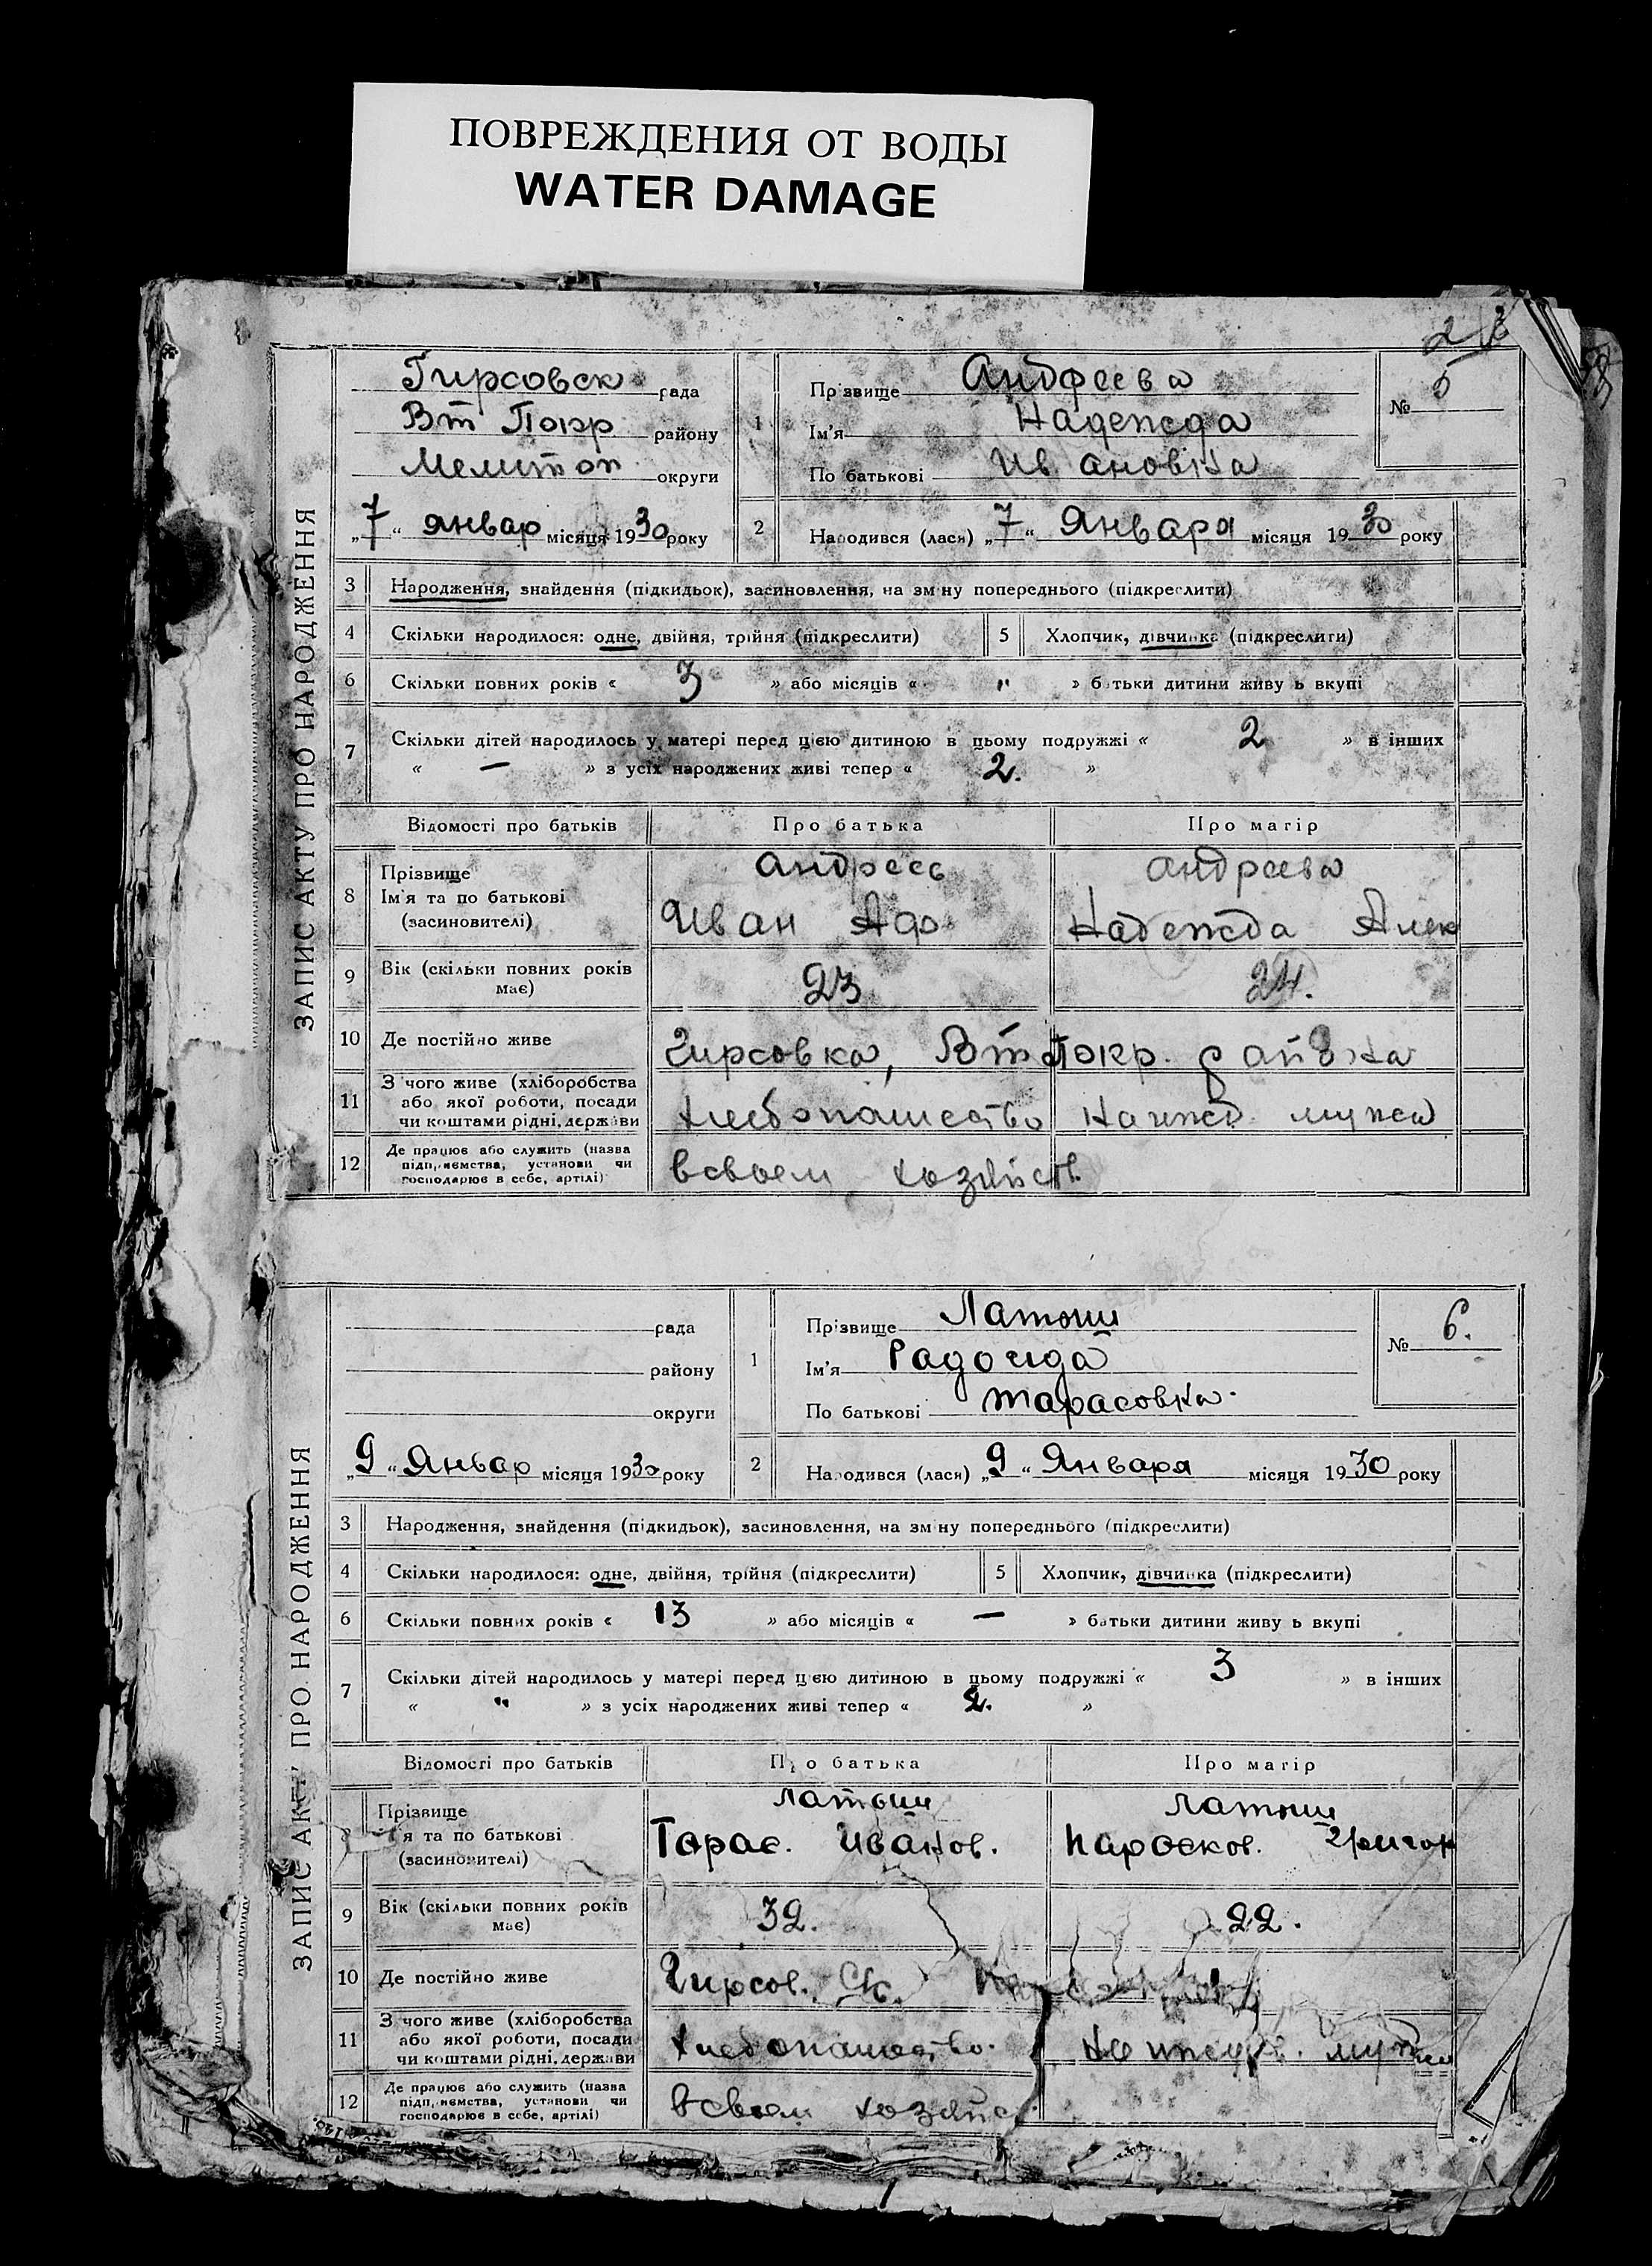 ПОВРЕЖДЕНИЯ ОТ ВОДЫ
WATER DAMAGE
ЗАПИС АКТУ ПРО НАРОДЖЕННЯ
Гирсовск рада
Вт Покр району
Мелитоп округи
„7“ январ місяця 1930 року
1
Прізвище Андреева
Ім'я Надежда
По батькові Ивановна
№ 5
2
Народився (лася) „7“ Января місяця 1930 року
3 Народження, знайдення (підкидьок), засиновлення, на зміну попереднього (підкреслити)
4 Скільки народилося: одне, двійня, трійня (підкреслити) 5 Хлопчик, дівчинка (підкреслити)
6 Скільки повних років « 3 » або місяців « " » батьки дитини живуть вкупі
7 Скільки дітей народилось у матері перед цією дитиною в цьому подружжі « 2 » в інших
« — » з усіх народжених живі тепер « 2. »
Відомості про батьків Про батька Про матір
8 Прізвище
Ім'я та по батькові
(засиновителі)
Андреев
Иван
Андреева
Надежда Алек
9 Вік (скільки повних років
має)
23
24.
10 Де постійно живе Гирсовка, Вт Покр.
11 З чого живе (хліборобства
або якої роботи, посади
чи коштами рідні, держави
хлебопашество
на ижд. мужа
12 Де працює або служить (назва
підприємства, установи чи
господарює в себе, артілі)
в своем хозяйств.
ЗАПИС АКТУ ПРО НАРОДЖЕННЯ
рада
району
округи
„9“ Январ місяця 1930 року
1
Прізвище Латыш
Ім'я
По батькові Тарасовна
№ 6.
2
Народився (лася) „9“ Января місяця 1930 року
3 Народження, знайдення (підкидьок), засиновлення, на зміну попереднього (підкреслити)
4 Скільки народилося: одне, двійня, трійня (підкреслити) 5 Хлопчик, дівчинка (підкреслити)
6 Скільки повних років « 13 » або місяців « — » батьки дитини живуть вкупі
7 Скільки дітей народилось у матері перед цією дитиною в цьому подружжі « 3 » в інших
« " » з усіх народжених живі тепер « 2. »
Відомості про батьків Про батька Про матір
8 Прізвище
Ім'я та по батькові
(засиновителі)
Латыш
Тарас. Иванов.
Латыш
Парасков. Григор
9 Вік (скільки повних років
має)
32.
22.
10 Де постійно живе Гирсов.
11 З чого живе (хліборобства
або якої роботи, посади
чи коштами рідні, держави
хлебопашество.
мужа
12 Де працює або служить (назва
підприємства, установи чи
господарює в себе, артілі)
в своем хозяйс